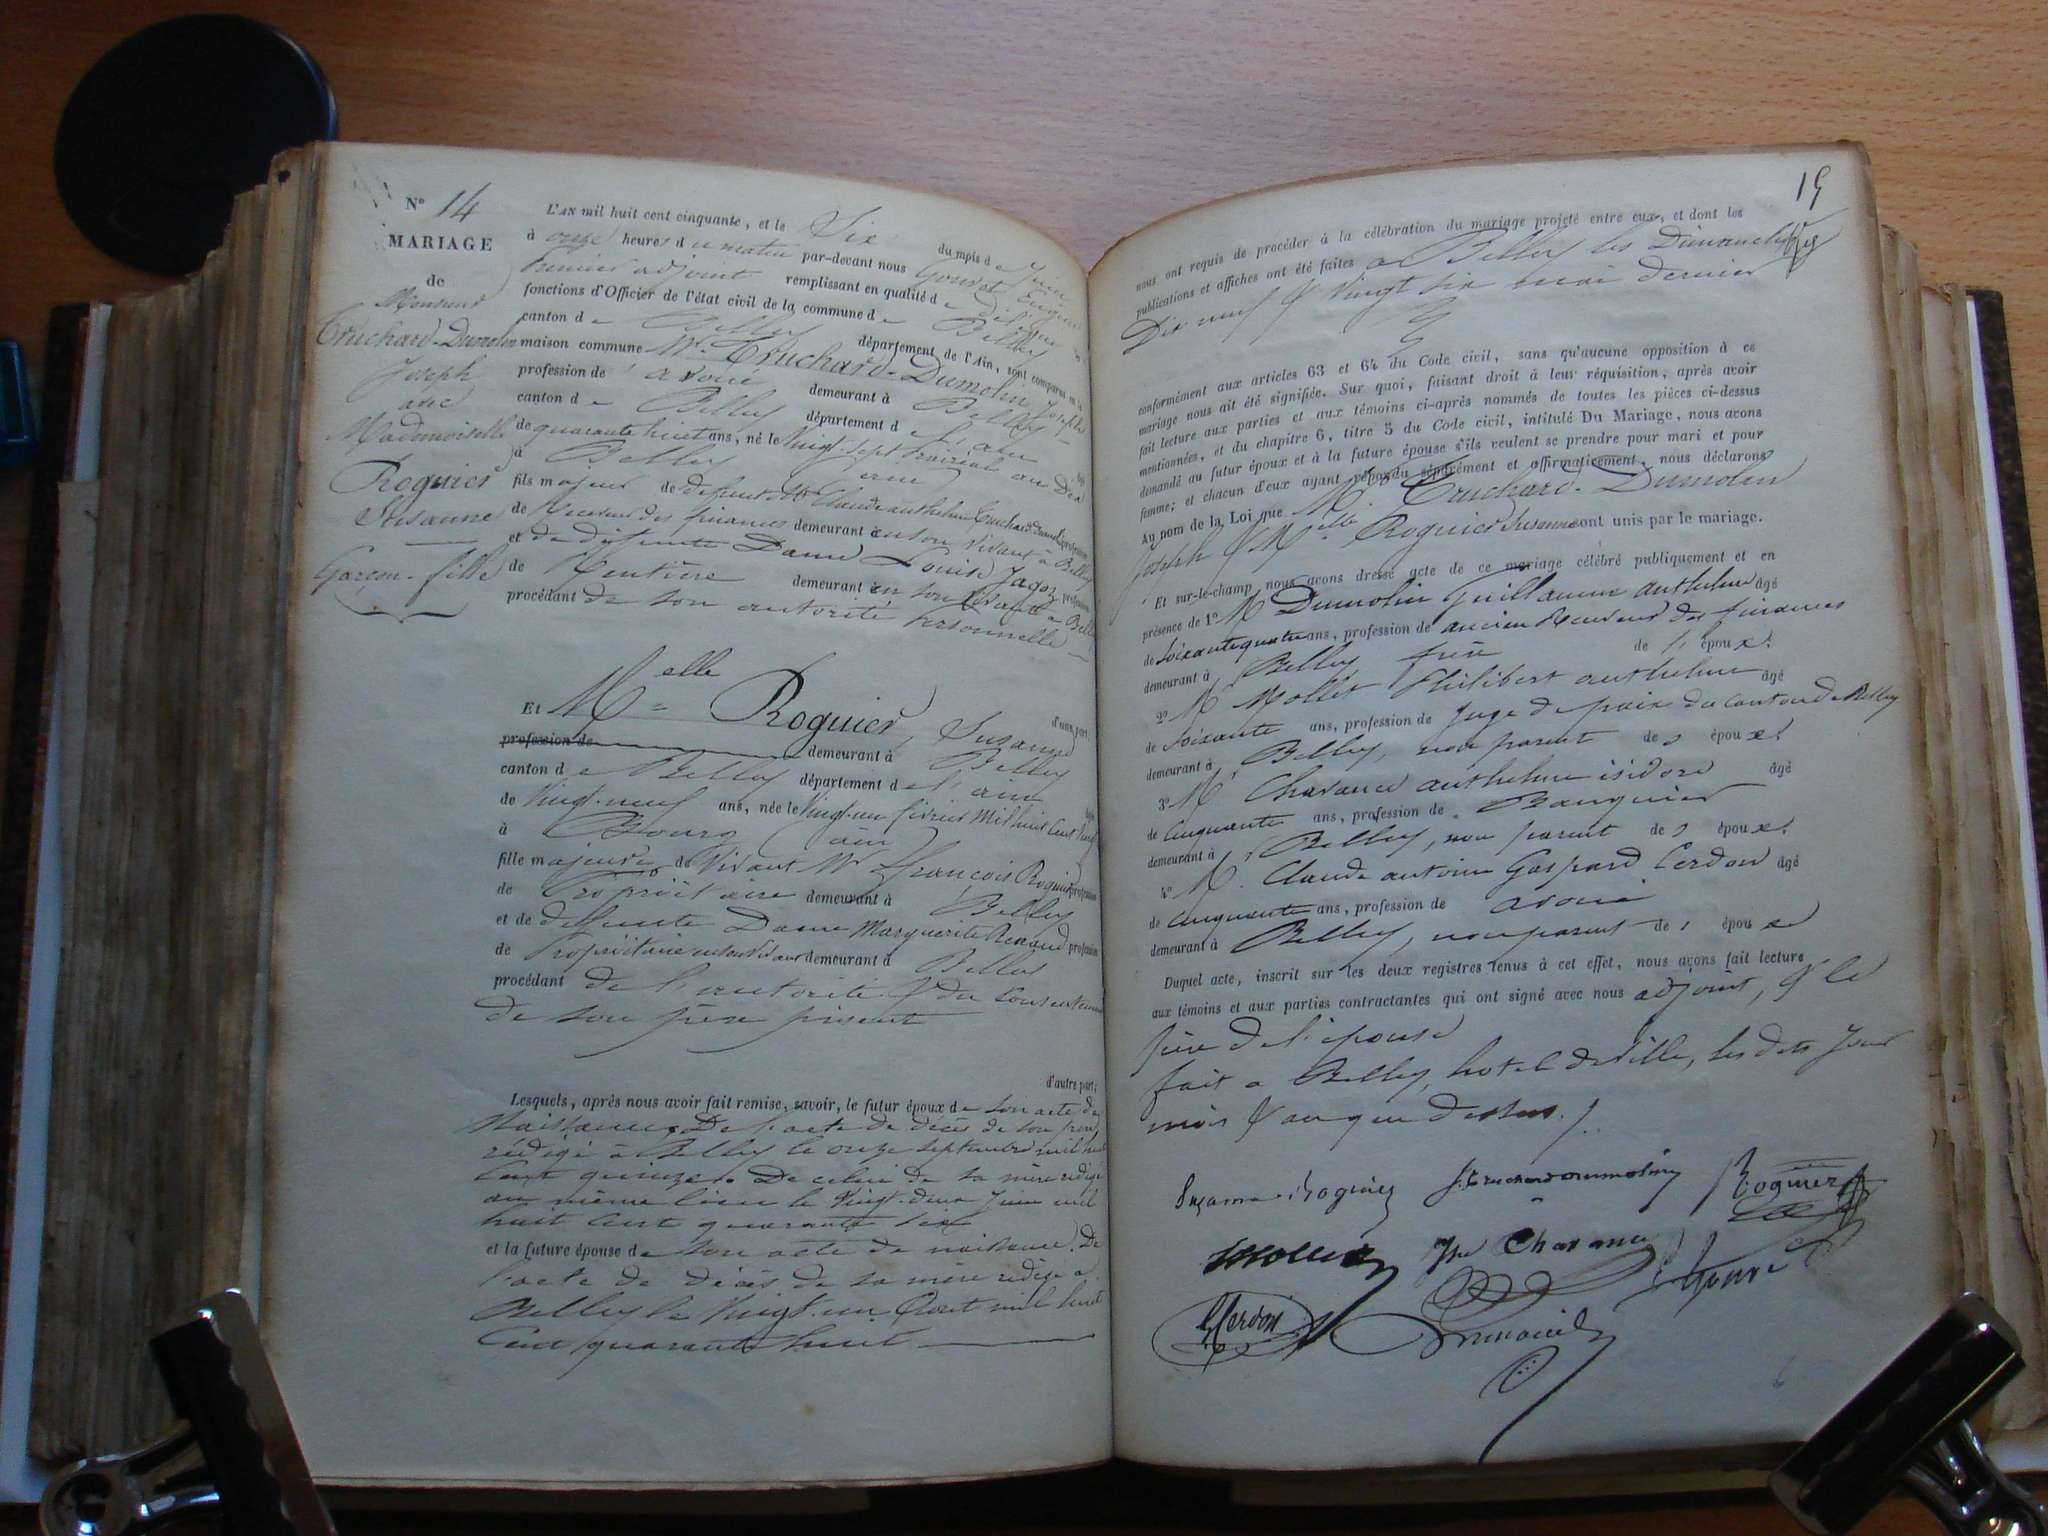 N° 14
MARIAGE
de
Monsieur
Truchard-Dumolin
Joseph
avec
Mademoiselle
Roguier
Susanne
Garçon - fille
L'AN mil huit cent cinquante, et le Six du mois de Juin
à onze heures du matin par-devant nous Gouvet Eugène
Premier adjoint remplissant en qualité de
fonctions d'Officier de l'état civil de la commune de Belley
canton de Belley département de l'Ain, sont comparus en la
maison commune Mr. Truchard-Dumolin Joseph
profession de avoué demeurant à Belley
canton de Belley département de l'ain âgé
de quarante huit ans, né le Vingt-sept Prairial an Dix
à Belley ain
fils majeur de defunt Mr Claude anthelme Truchard Dumolin profession
de Receveur des finances demeurant en son vivant à Belley
et de defunte Dame Louise Jagoz profession
de Rentière demeurant en son vivant à Belley
procédant de son autorité personnelle
d'une part;
Et Melle Roguier, Susanne
profession de demeurant à Belley
canton de Belley département de l'ain âgée
de Vingt-neuf ans, née le Vingt-un février Mil huit Cent Vingt
à Bourg ain
fille majeure de Vivant Mr François Roguier profession
de Propriétaire demeurant à Belley
et de défunte Dame Marguerite Renaud profession
de Propriétaire en son vivant demeurant à Belley
procédant de l'autorité & du Consentement
de son père présent
d'autre part;
Lesquels, après nous avoir fait remise, savoir, le futur époux de son acte de
Naissance. De l'acte de décès de son père,
rédigé à Belley le onze septembre mil huit
Cent quinze. De celui de sa mère rédigé
au même lieu le Vingt-deux Juin mil
huit Cent quarante six
et la future épouse de son acte de naissance. De
l'acte de décès de sa mère rédigé à
Belley le Vingt-un Août mil huit
Cent quarante huit
15
nous ont requis de procéder à la célébration du mariage projeté entre eux, et dont les
publications et affiches ont été faites à Belley les Dimanches
Dix neuf & vingt six mai dernier
conformément aux articles 63 et 64 du Code civil, sans qu'aucune opposition à ce
mariage nous ait été signifiée. Sur quoi, faisant droit à leur réquisition, après avoir
fait lecture aux parties et aux témoins ci-après nommés de toutes les pièces ci-dessus
mentionnées, et du chapitre 6, titre 5 du Code civil, intitulé Du Mariage, nous avons
demandé au futur époux et à la future épouse s'ils veulent se prendre pour mari et pour
femme; et chacun d'eux ayant répondu séparément et affirmativement, nous déclarons
Au nom de la Loi que Mr. Truchard-Dumolin
Joseph & Melle Roguier Susanne sont unis par le mariage.
Et sur-le-champ nous avons dressé acte de ce mariage célébré publiquement et en
présence de 1° M Dumolin Guillaume anthelme âgé
de Soixante quatre ans, profession de ancien Receveur des finances
demeurant à Belley frère de l'époux.
2° M Mollet Philibert anthelme âgé
de Soixante ans, profession de Juge de paix du Canton de Belley
demeurant à Belley, non parent des époux.
3° M Charance anthelme isidore âgé
de Cinquante ans, profession de Banquier
demeurant à Belley, non parent des époux.
4° M. Claude antoine Gaspard Cerdon âgé
de Cinquante ans, profession de avoué
demeurant à Belley, non parent des époux
Duquel acte, inscrit sur les deux registres tenus à cet effet, nous avons fait lecture
aux témoins et aux parties contractantes qui ont signé avec nous adjoint, & le
père de l'épouse
fait à Belley, hotel de Ville, les dits Jour
mois & an que dessus./.
Suzanne Roguier J. Truchard Dumolin Roguier
Mollet Jre Charance Gouvet
Cerdon Dumolin